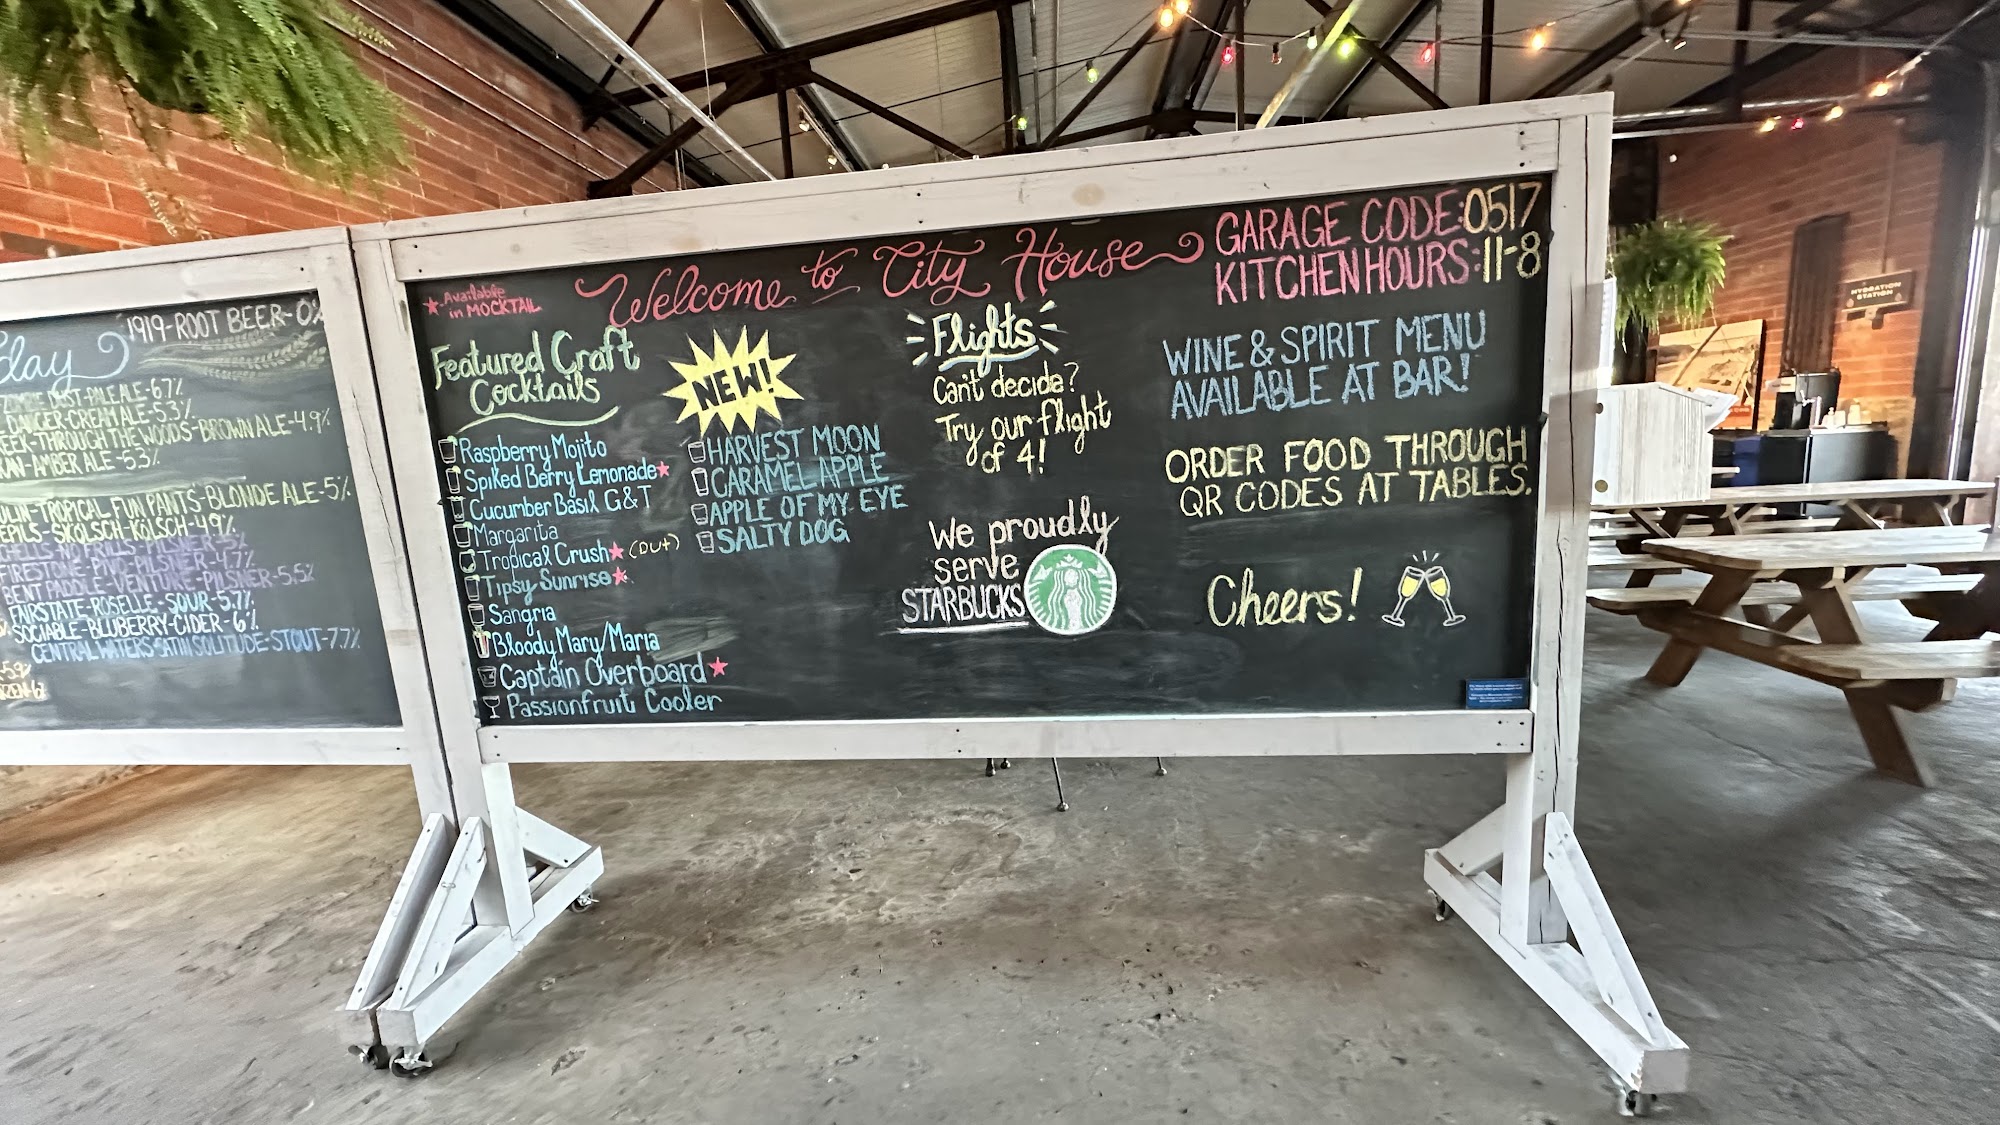 1919-ROOT BEER-0%
ZOMBIE DUST-PALE ALE-6.7%
CREAM ALE-5.3%
THROUGH THE WOODS-BROWN ALE-4.9%
AMBER ALE-5.3%
TROPICAL FUN PANTS-BLONDE ALE-5%
SKÖLSCH-KÖLSCH-4.9%
NO FRILLS-PILSNER
FIRESTONE-PIVO-PILSNER-4.7%
BENT PADDLE-VENTURE-PILSNER-5.5%
FAIRSTATE-ROSELLE-SOUR-5.7%
SOCIABLE-BLUBERRY-CIDER-6%
CENTRAL WATERS-SATIN SOLITUDE-STOUT-7.7%
Available
in MOCKTAIL
Welcome to City House
Featured Craft
Cocktails
Raspberry Mojito
Spiked Berry Lemonade
Cucumber Basil G&T
Margarita
Tropical Crush (OUT)
Tipsy Sunrise
Sangria
Bloody Mary/Maria
Captain Overboard
Passionfruit Cooler
NEW!
HARVEST MOON
CARAMEL APPLE
APPLE OF MY EYE
SALTY DOG
Flights
Can't decide?
Try our flight
of 4!
We proudly
serve
STARBUCKS
GARAGE CODE:0517
KITCHEN HOURS:11-8
WINE & SPIRIT MENU
AVAILABLE AT BAR!
ORDER FOOD THROUGH
QR CODES AT TABLES.
Cheers!
HYDRATION
STATION